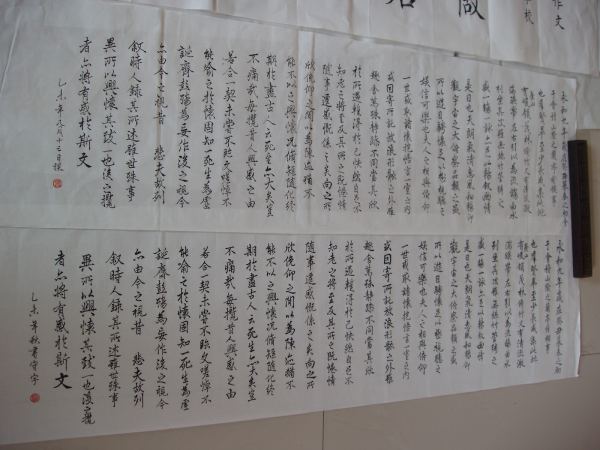 作文
學校
永和九年歲在癸丑暮春之初會
于會稽山陰之蘭亭脩禊事
也羣賢畢至少長咸集此地
有峻領茂林脩竹又有清流激
湍映帶左右引以為流觴曲水
列坐其次雖無絲竹管弦之
盛一觴一詠亦足以暢敘幽情
是日也天朗氣清惠風和暢仰
觀宇宙之大俯察品類之盛
所以遊目騁懷足以極視聽之
娛信可樂也夫人之相與俯仰
一世或取諸懷抱悟言一室之內
或因寄所託放浪形骸之外雖
趣舍萬殊靜躁不同當其欣
於所遇蹔得於己快然自足不
知老之將至及其所之既惓情
隨事遷感慨係之矣向之所
欣俛仰之閒以為陳迹猶不
能不以之興懷況脩短隨化終
期於盡古人云死生亦大矣豈
不痛哉每攬昔人興感之由
若合一契未嘗不臨文嗟悼不
能喻之於懷固知一死生為虛
誕齊彭殤為妄作後之視今
亦由今之視昔 悲夫故列
敘時人錄其所述雖世殊事
異所以興懷其致一也後之攬
者亦將有感於斯文
乙未年九月十三日
永和九年歲在癸丑暮春之初
會于會稽山陰之蘭亭脩禊事
也羣賢畢至少長咸集此地
有峻領茂林脩竹又有清流激
湍映帶左右引以為流觴曲水
列坐其次雖無絲竹管弦之
盛一觴一詠亦足以暢敘幽情
是日也天朗氣清惠風和暢仰
觀宇宙之大俯察品類之盛
所以遊目騁懷足以極視聽之
娛信可樂也夫人之相與俯仰
一世或取諸懷抱悟言一室之內
或因寄所託放浪形骸之外雖
趣舍萬殊靜躁不同當其欣
於所遇蹔得於己快然自足不
知老之將至及其所之既惓情
隨事遷感慨係之矣向之所
欣俛仰之閒以為陳迹猶不
能不以之興懷況脩短隨化終
期於盡古人云死生亦大矣豈
不痛哉每攬昔人興感之由
若合一契未嘗不臨文嗟悼不
能喻之於懷固知一死生為虛
誕齊彭殤為妄作後之視今
亦由今之視昔 悲夫故列
敘時人錄其所述雖世殊事
異所以興懷其致一也後之攬
者亦將有感於斯文
乙未年秋書守宇